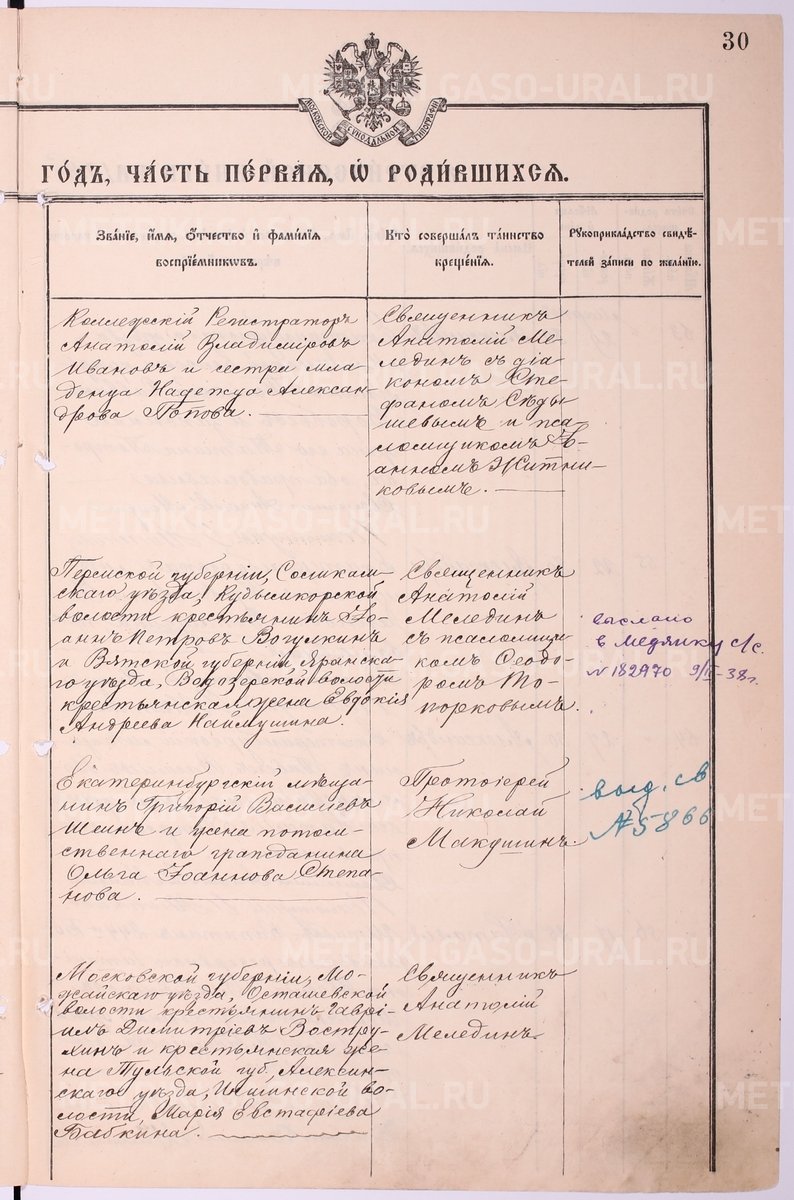 30
МОСКОВСКОЙ СѴНОДАЛЬНОЙ ТИПОГРАФІИ
ГО́ДЪ, ЧА́СТЬ ПЕ́РВАЯ, Ѽ РОДИ́ВШИХСЯ.
ЗВА́НІЕ, И҆́МЯ, Ѻ҆́ТЧЕСТВО И҆ ФАМИ́ЛІЯ
ВОСПРІЕ́МНИКѠВЪ.
КТО̀ СОВЕРША́ЛЪ ТА́ИНСТВО
КРЕЩЕ́НІЯ.
РꙊКОПРИКЛА́ДСТВО СВИДѢ́-
ТЕЛЕЙ ЗА́ПИСИ ПО ЖЕЛА́НІЮ.
Коллежскій Регистраторъ
Анатолій Владиміровъ
Ивановъ и сестра мла-
денца Надежда Александ-
дрова Попова.
Священникъ
Анатолій Ме-
лединъ съ діа-
кономъ Сте-
фаномъ Сѣды-
шевымъ и пса-
ломщикомъ Іо-
анномъ Житни-
ковымъ.
Пермской губерніи, Соликам-
скаго уѣзда, Кудымкорской
волости крестьянинъ Іо-
аннъ Петровъ Вогулкинъ
и Вятской губерніи, Яранска-
го уѣзда, Водозерской волости
крестьянская жена Евдокія
Андреева Наймушина.
Священникъ
Анатолій
Мелединъ
съ псаломщи-
комъ Ѳеодо-
ромъ То-
порковымъ.
выслано
в Медянку с/с.
№ 182970 9/II-38г.
Екатеринбургскій мѣща-
нинъ Григорій Васильевъ
Шеинъ и жена потом-
ственнаго гражданина
Ольга Іоаннова Степа-
нова.
Протоіерей
Николай
Макушинъ.
выд. св
№ 5866
Московской губерніи, Мо-
жайскаго уѣзда, Осташевской
волости крестьянинъ Гаврі-
илъ Димитріевъ Востру-
хинъ и крестьянская же-
на Тульской губ., Алексин-
скаго уѣзда, Ишинской во-
лости, Марія Евстафіева
Бабкина.
Священникъ
Анатолій
Мелединъ.
METRIKI.GASO-URAL.RU